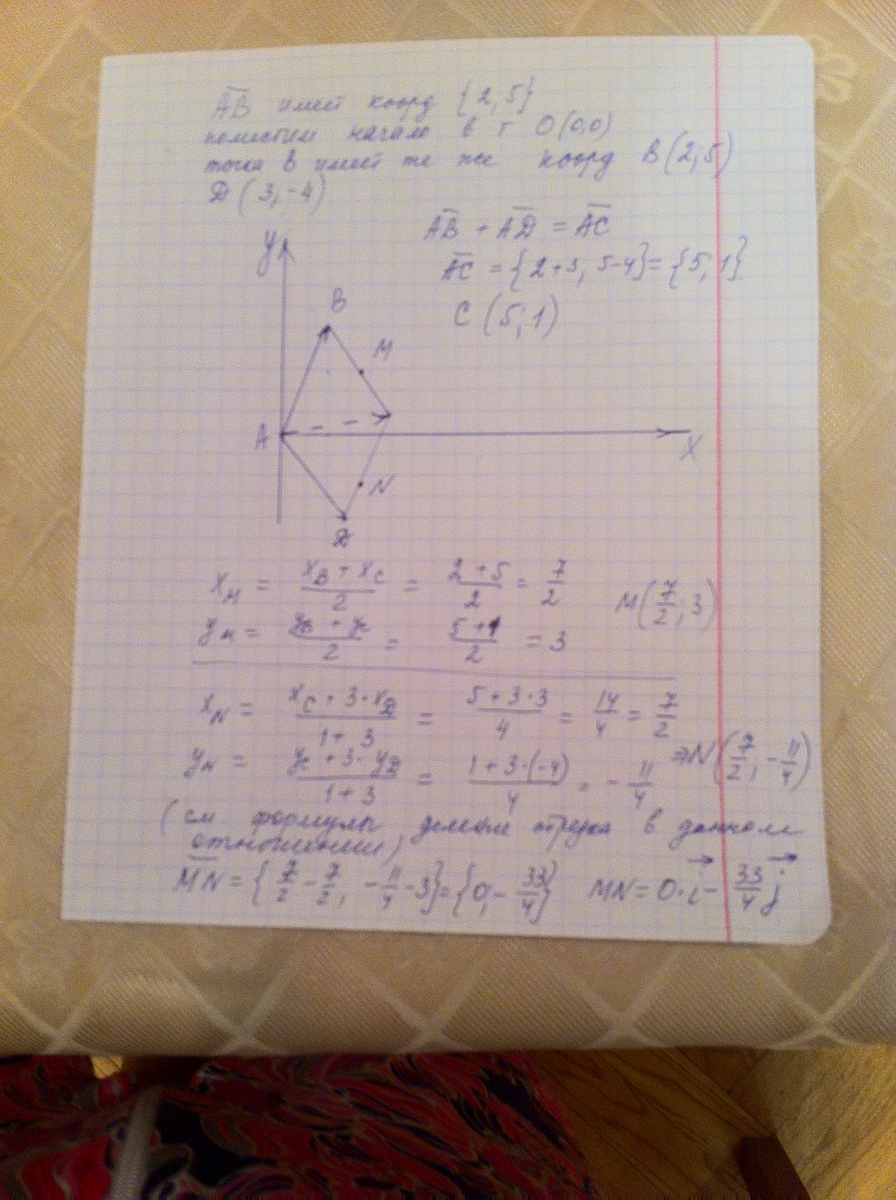 AB имеет коорд {2, 5}
поместим начало в т O(0,0)
точка B имеет те же коорд B(2; 5)
D(3, -4)
AB + AD = AC
AC = {2+3, 5-4} = {5, 1}
C (5; 1)
y
B
M
A
X
N
D
x_M = (x_B + x_C)/2 = (2+5)/2 = 7/2
M(7/2; 3)
y_M = (y_B + y_C)/2 = (5+1)/2 = 3
x_N = (x_C + 3·x_D)/(1+3) = (5+3·3)/4 = 14/4 = 7/2
y_N = (y_C + 3·y_D)/(1+3) = (1+3·(-4))/4 = -11/4 ⇒ N(7/2; -11/4)
(см формулы деления отрезка в данном
отношении)
MN = {7/2 - 7/2, -11/4 - 3} = {0, -33/4} MN = 0·i - 33/4 j